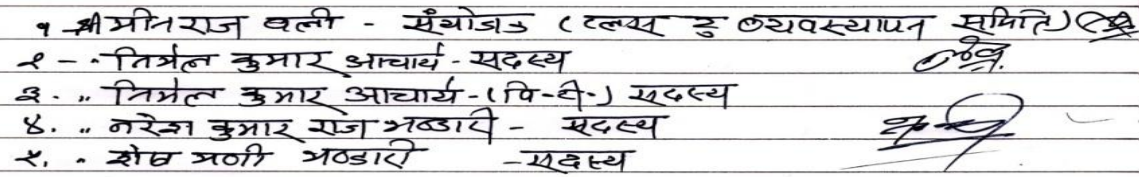 १ श्री मीनराज वली - संयोजक (प्लस टु व्यवस्थापन समिति)
२ - " निर्मल कुमार आचार्य - सदस्य
३. " निर्मल कुमार आचार्य - (पि.बी.) सदस्य
४. " नरेश कुमार राज भण्डारी - सदस्य
५. " शेष मणी भण्डारी - सदस्य